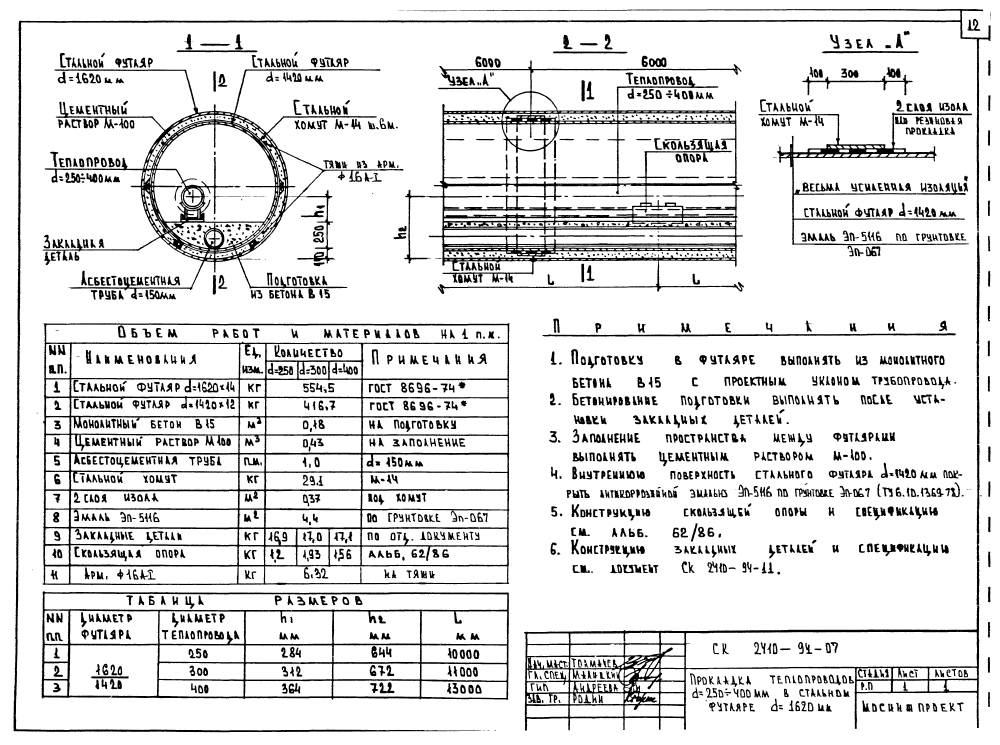 12
1 — 1
2 — 2
УЗЕЛ „А"
СТАЛЬНОЙ ФУТЛЯР
d=1620мм
СТАЛЬНОЙ ФУТЛЯР
d=1420мм
ЦЕМЕНТНЫЙ
РАСТВОР М-100
СТАЛЬНОЙ
ХОМУТ М-14 ш.6м.
ТЕПЛОПРОВОД
d=250÷400мм
ТЯЖИ ИЗ АРМ.
Ф 16А-I
ЗАКЛАДНАЯ
ДЕТАЛЬ
АСБЕСТОЦЕМЕНТНАЯ
ТРУБА d=150мм
ПОДГОТОВКА
ИЗ БЕТОНА В15
2
2
h1
250
110
6000
6000
„УЗЕЛ „А"
1
ТЕПЛОПРОВОД
d=250÷400мм
СКОЛЬЗЯЩАЯ
ОПОРА
h2
СТАЛЬНОЙ
ХОМУТ М-14
1
L
L
100
300
100
СТАЛЬНОЙ
ХОМУТ М-14
2 СЛОЯ ИЗОЛА
ИЛИ РЕЗИНОВАЯ
ПРОКЛАДКА
„ВЕСЬМА УСИЛЕННАЯ ИЗОЛЯЦЬЯ"
СТАЛЬНОЙ ФУТЛЯР d=1420мм
ЭМАЛЬ ЭП-5116 ПО ГРУНТОВКЕ
ЭП-067
ОБЪЕМ РАБОТ И МАТЕРИАЛОВ НА 1 П.М.
NN П.П. НАИМЕНОВАНИЯ ЕД. ИЗМ. КОЛИЧЕСТВО ПРИМЕЧАНИЯ
d=250 d=300 d=400
1 СТАЛЬНОЙ ФУТЛЯР d=1620×14 КГ 554,5 ГОСТ 8696-74*
2 СТАЛЬНОЙ ФУТЛЯР d=1420×12 КГ 416,7 ГОСТ 8696-74*
3 МОНОЛИТНЫЙ БЕТОН В15 М3 0,18 НА ПОДГОТОВКУ
4 ЦЕМЕНТНЫЙ РАСТВОР М100 М3 0,43 НА ЗАПОЛНЕНИЕ
5 АСБЕСТОЦЕМЕНТНАЯ ТРУБА П.М. 1,0 d=150мм
6 СТАЛЬНОЙ ХОМУТ КГ 29,1 М-14
7 2 СЛОЯ ИЗОЛА М2 0,37 ПОД ХОМУТ
8 ЭМАЛЬ ЭП-5116 М2 4,4 ПО ГРУНТОВКЕ ЭП-067
9 ЗАКЛАДНЫЕ ДЕТАЛИ КГ 16,9 17,0 17,1 ПО ОТД. ДОКУМЕНТУ
10 СКОЛЬЗЯЩАЯ ОПОРА КГ 1,2 1,93 1,56 АЛЬБ. 62/86
11 АРМ. Ф16А-I КГ 6.32 НА ТЯЖИ
ТАБЛИЦА РАЗМЕРОВ
NN П.П. ДИАМЕТР ФУТЛЯРА ДИАМЕТР ТЕПЛОПРОВОДА h1 ММ h2 ММ L ММ
1 1620 1420 250 284 644 10000
2 300 312 672 11000
3 400 364 722 13000
ПРИМЕЧАНИЯ
1. ПОДГОТОВКУ В ФУТЛЯРЕ ВЫПОЛНЯТЬ ИЗ МОНОЛИТНОГО
БЕТОНА В15 С ПРОЕКТНЫМ УКЛОНОМ ТРУБОПРОВОДА.
2. БЕТОНИРОВАНИЕ ПОДГОТОВКИ ВЫПОЛНЯТЬ ПОСЛЕ УСТА-
НОВКИ ЗАКЛАДНЫХ ДЕТАЛЕЙ.
3. ЗАПОЛНЕНИЕ ПРОСТРАНСТВА МЕЖДУ ФУТЛЯРАМИ
ВЫПОЛНЯТЬ ЦЕМЕНТНЫМ РАСТВОРОМ М-100.
4. ВНУТРЕННЮЮ ПОВЕРХНОСТЬ СТАЛЬНОГО ФУТЛЯРА d=1420 ММ ПОК-
РЫТЬ АНТИКОРРОЗИЙНОЙ ЭМАЛЬЮ ЭП-5116 ПО ГРУНТОВКЕ ЭП-067 (ТУ6.10.1369-78).
5. КОНСТРУКЦИЮ СКОЛЬЗЯЩЕЙ ОПОРЫ И СПЕЦИФИКАЦИЮ
СМ. АЛЬБ. 62/86.
6. КОНСТРУКЦИЮ ЗАКЛАДНЫХ ДЕТАЛЕЙ И СПЕЦИФИКАЦИЮ
СМ. ДОКУМЕНТ СК 2410-94-11.
СК 2410-94-07
НАЧ. МАСТ. ТОЛМАЧЕВ
ГЛ. СПЕЦ.
ГИП АНДРЕЕВА
ЗАВ. ГР. РОДИН
ПРОКЛАДКА ТЕПЛОПРОВОДОВ
d=250÷400 ММ В СТАЛЬНОМ
ФУТЛЯРЕ d=1620 ММ
СТАДИЯ ЛИСТ ЛИСТОВ
Р.П 1 1
МОСИНЖПРОЕКТ